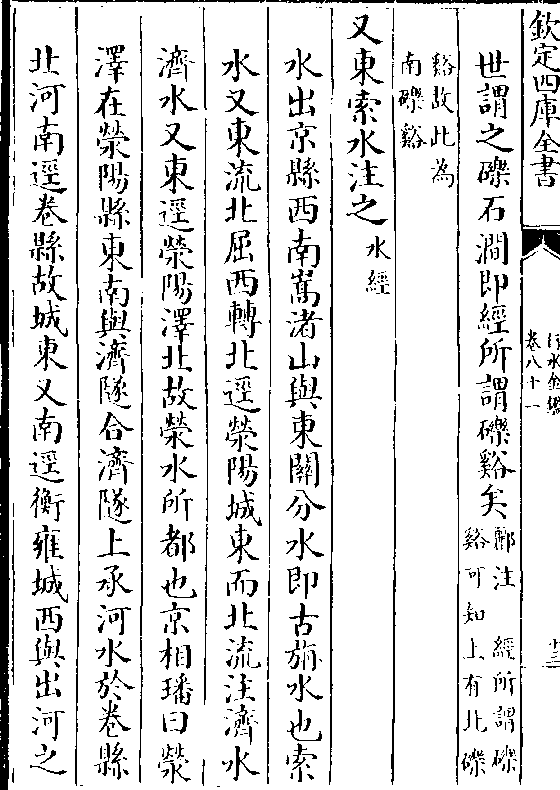 欽定四庫全書
行水金鑑
卷八十一
十三
世謂之礫石澗即經所謂礫谿矣酈注 經所謂礫
谿可知上有北礫
谿故此為
南礫谿
又東索水注之水經
水出京縣西南嵩渚山與東關分水即古旃水也索
水又東流北屈西轉北逕滎陽城東而北流注濟水
濟水又東逕滎陽澤北故滎水所都也京相璠曰滎
澤在滎陽縣東南與濟隧合濟隧上承河水於卷縣
北河南逕卷縣故城東又南逕衡雍城西與出河之